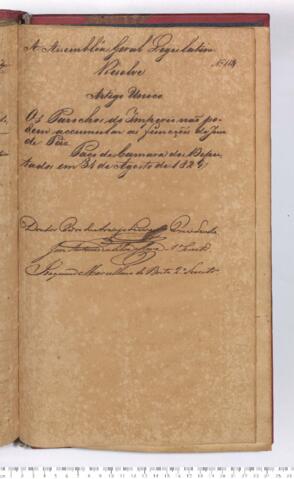 A Assembléa Geral Legislativa
Resolve
Artigo Unico
Os Parochos do Imperio não po-
dem accumular as funcções de Juiz
de Paz.
Paço da Camara dos Depu-
tados em 31 de Agosto de 1829
Presidente
1º Secret
Marcellino de Brito 2º Secreto